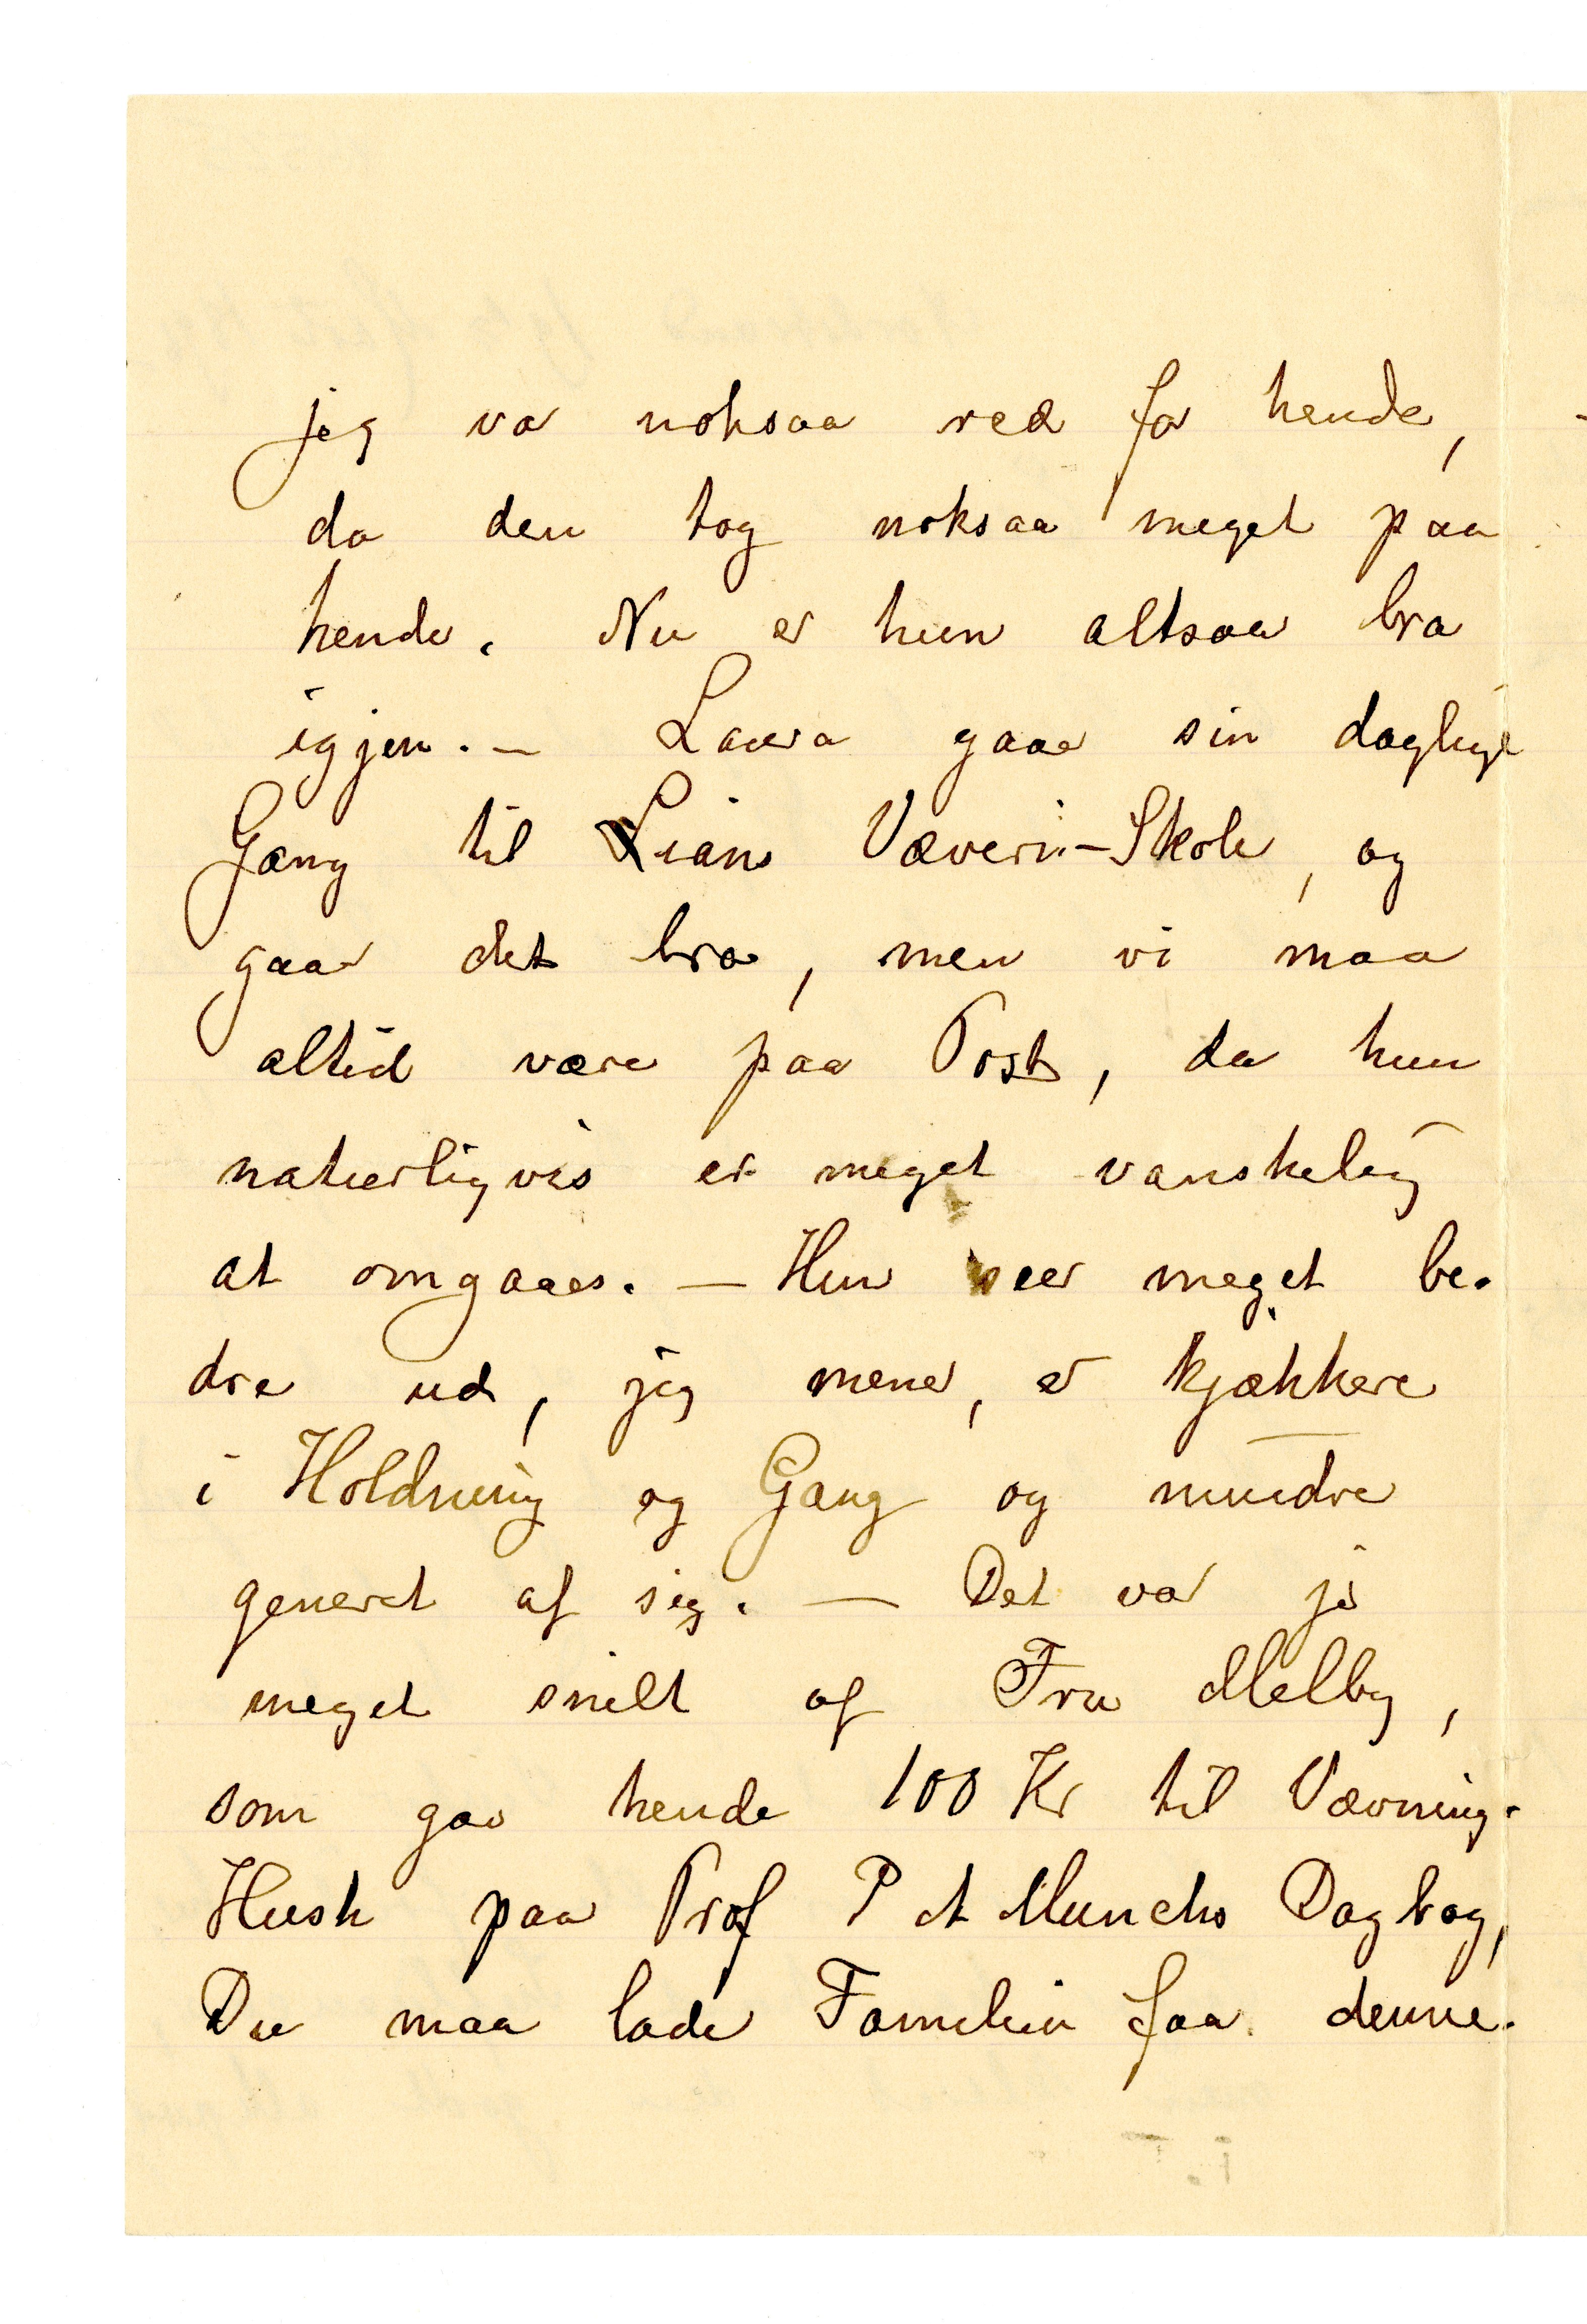 jeg var noksaa ræd for hende,
da den tog noksaa meget paa
hende. Nu er hun altsaa bra
igjen. – Laura gaar sin daglige
Gang til Lians Væveri-Skole, og
gaar det bra, men vi maa
altid være paa Post, da hun
naturligvis er meget vanskelig
at omgaaes. – Hun seer meget be-
dre ud, jeg mener, er kjækkere
i Holdning og Gang og mindre
generet af sig. – Det var jo
meget snilt af Fru Melby,
som gav hende 100 Kr til Vævning.
Husk paa Prof P A Munchs Dagbog,
Du maa lade Familien faa denne.